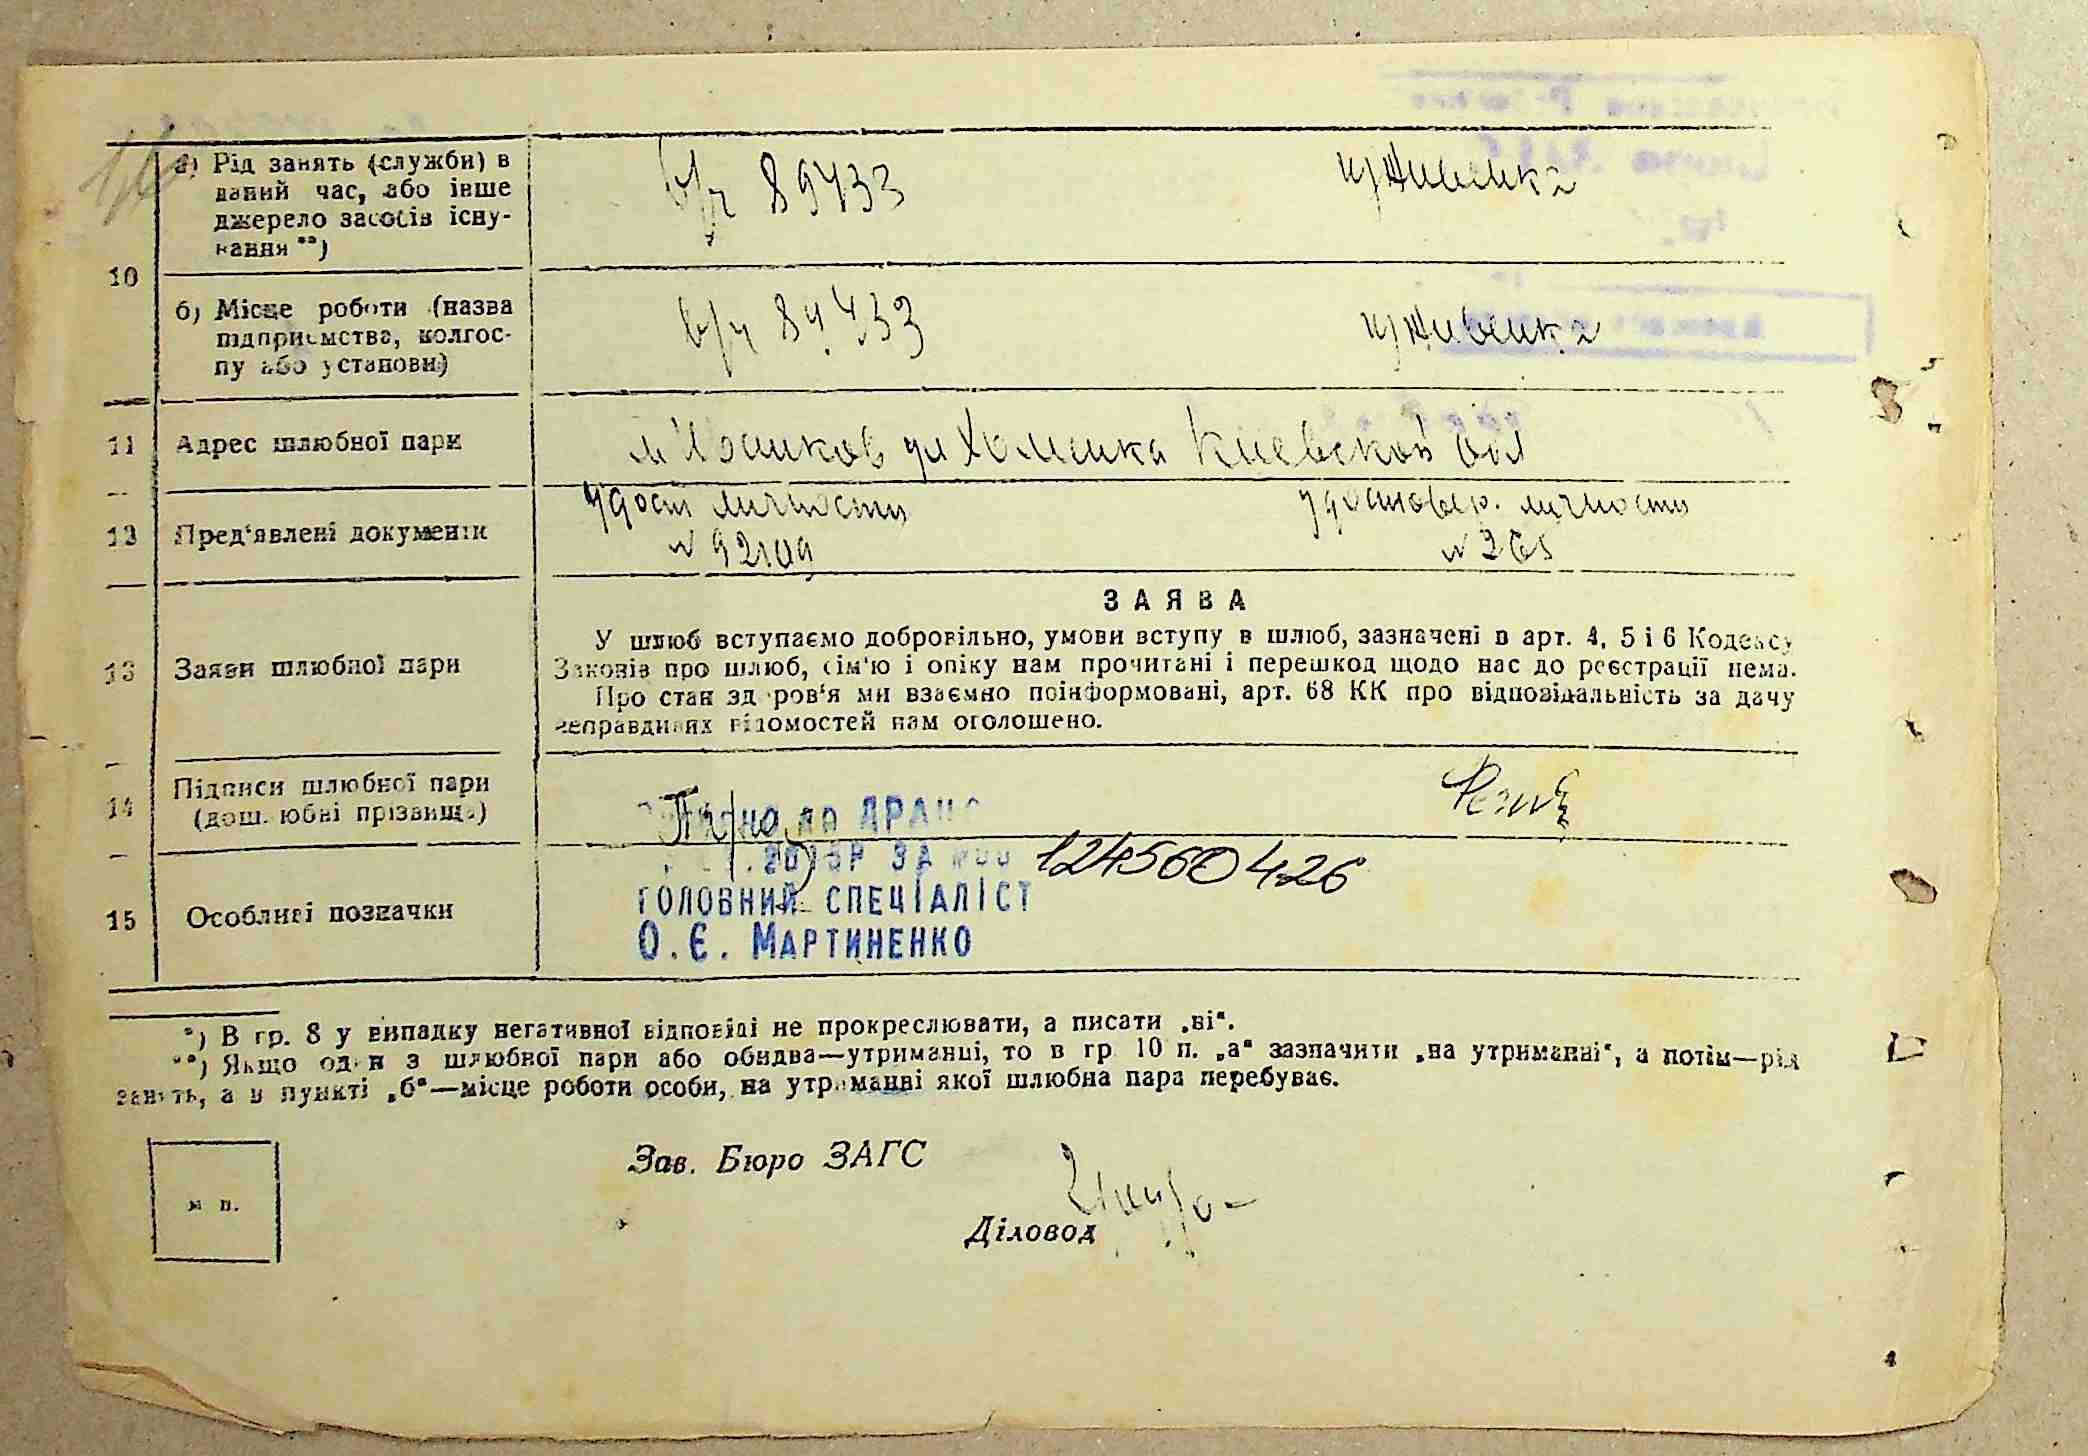 10
а) Рід занять (служби) в
даний час, або інше
джерело засобів існу-
вання **)
в/ч 89433
иждивенка
б) Місце роботи (назва
підприємства, колгос-
пу або установи)
в/ч 89433
иждивенка
11
Адрес шлюбної пари
ул Хоменка Киевской обл
12
Пред'явлені документи
Удост личности
удостовер. личности
№ 92109
№ 365
13
Заяви шлюбної пари
ЗАЯВА
У шлюб вступаємо добровільно, умови вступу в шлюб, зазначені в арт. 4, 5 і 6 Кодексу
Законів про шлюб, сім'ю і опіку нам прочитані і перешкод щодо нас до реєстрації нема.
Про стан здоров'я ми взаємно поінформовані, арт. 68 КК про відповідальність за дачу
неправдивих відомостей нам оголошено.
14
Підписи шлюбної пари
(дошлюбні прізвища)
до ДРАЦС
ЗА №00 1245560426
15
Особливі позначки
ГОЛОВНИЙ СПЕЦІАЛІСТ
О.Є. МАРТИНЕНКО
*) В гр. 8 у випадку негативної відповіді не прокреслювати, а писати „ні“.
**) Якщо один з шлюбної пари або обидва—утриманці, то в гр 10 п. „а“ зазначити „на утриманні“, а потім—рід
занять, а в пункті „б“—місце роботи особи, на утриманні якої шлюбна пара перебуває.
Зав. Бюро ЗАГС
м п.
Діловод